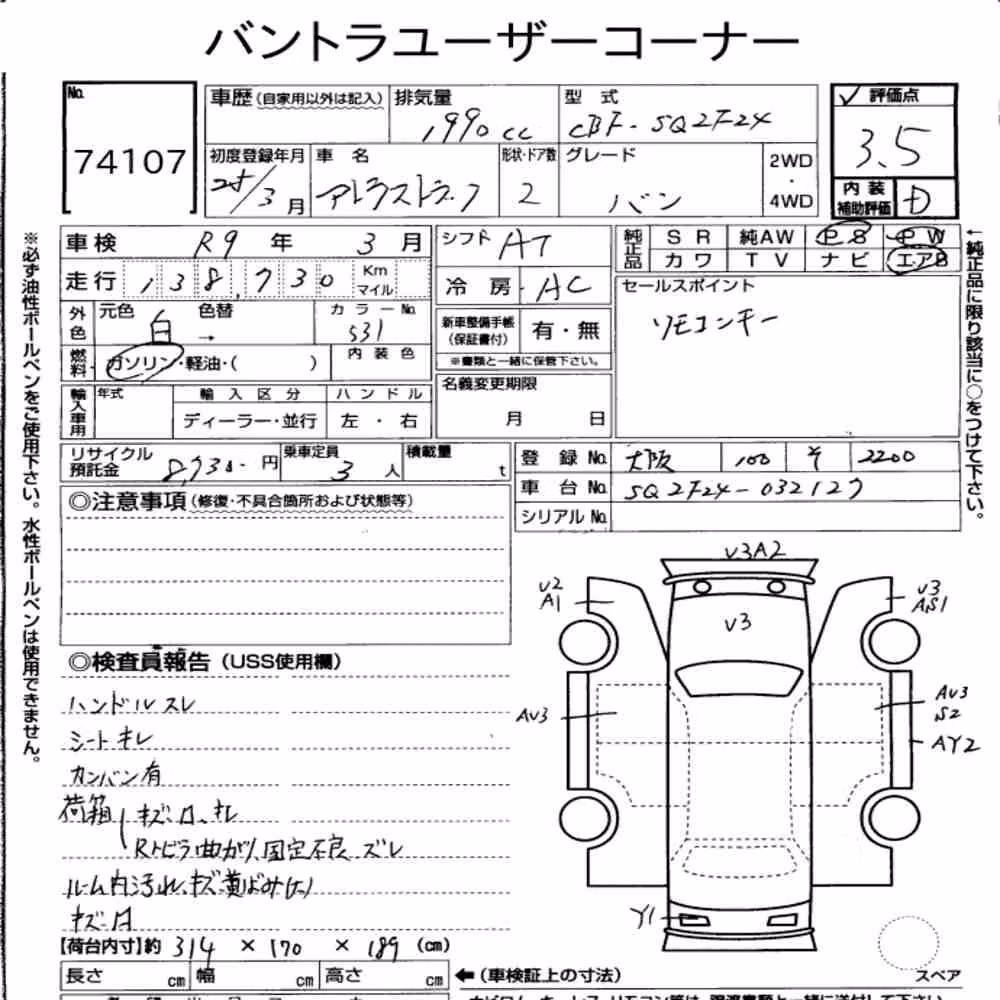 バントラユーザーコーナー
No. 74107
車歴(自家用以外は記入) 排気量 1990cc 型式 CBF-SQ2F24
初度登録年月 25/3月 車名 アトラストラック 形状・ドア数 2 グレード バン 2WD・4WD
✓ 評価点 3.5
内装補助評価 D
車検 R9年 3月
走行 138,730 Km マイル
外色 元色 白 色替 → カラーNo. 531
燃料 ガソリン・軽油・( ) 内装色
輸入車用 年式 輸入区分 ディーラー・並行 ハンドル 左・右
シフト AT
冷房 AC
新車整備手帳(保証書付) 有・無
※書類と一緒に保管下さい。
名義変更期限 月 日
純正品 SR 純AW PS PW
カワ TV ナビ エアB
セールスポイント
リモコンキー
リサイクル預託金 8,730-円 乗車定員 3人 積載量 t
登録No. 大阪 100 そ 2200
車台No. SQ2F24-032127
シリアルNo.
※必ず油性ボールペンをご使用下さい。水性ボールペンは使用できません。
←純正品に限り該当に○をつけて下さい。
◎注意事項(修復・不具合箇所および状態等)
◎検査員報告(USS使用欄)
ハンドルスレ
シートキレ
カンバン有
荷箱 キズ・凹、キレ
Rトビラ曲がり、固定不良 ズレ
ルーム内汚れ、キズ、黄ばみ
キズ・凹
【荷台内寸】約 314 × 170 × 189 (cm)
長さ cm 幅 cm 高さ cm ←(車検証上の寸法)
V3A2
V2
A1
V3
AS1
V3
AV3
AV3
S2
AY2
Y1
スペア